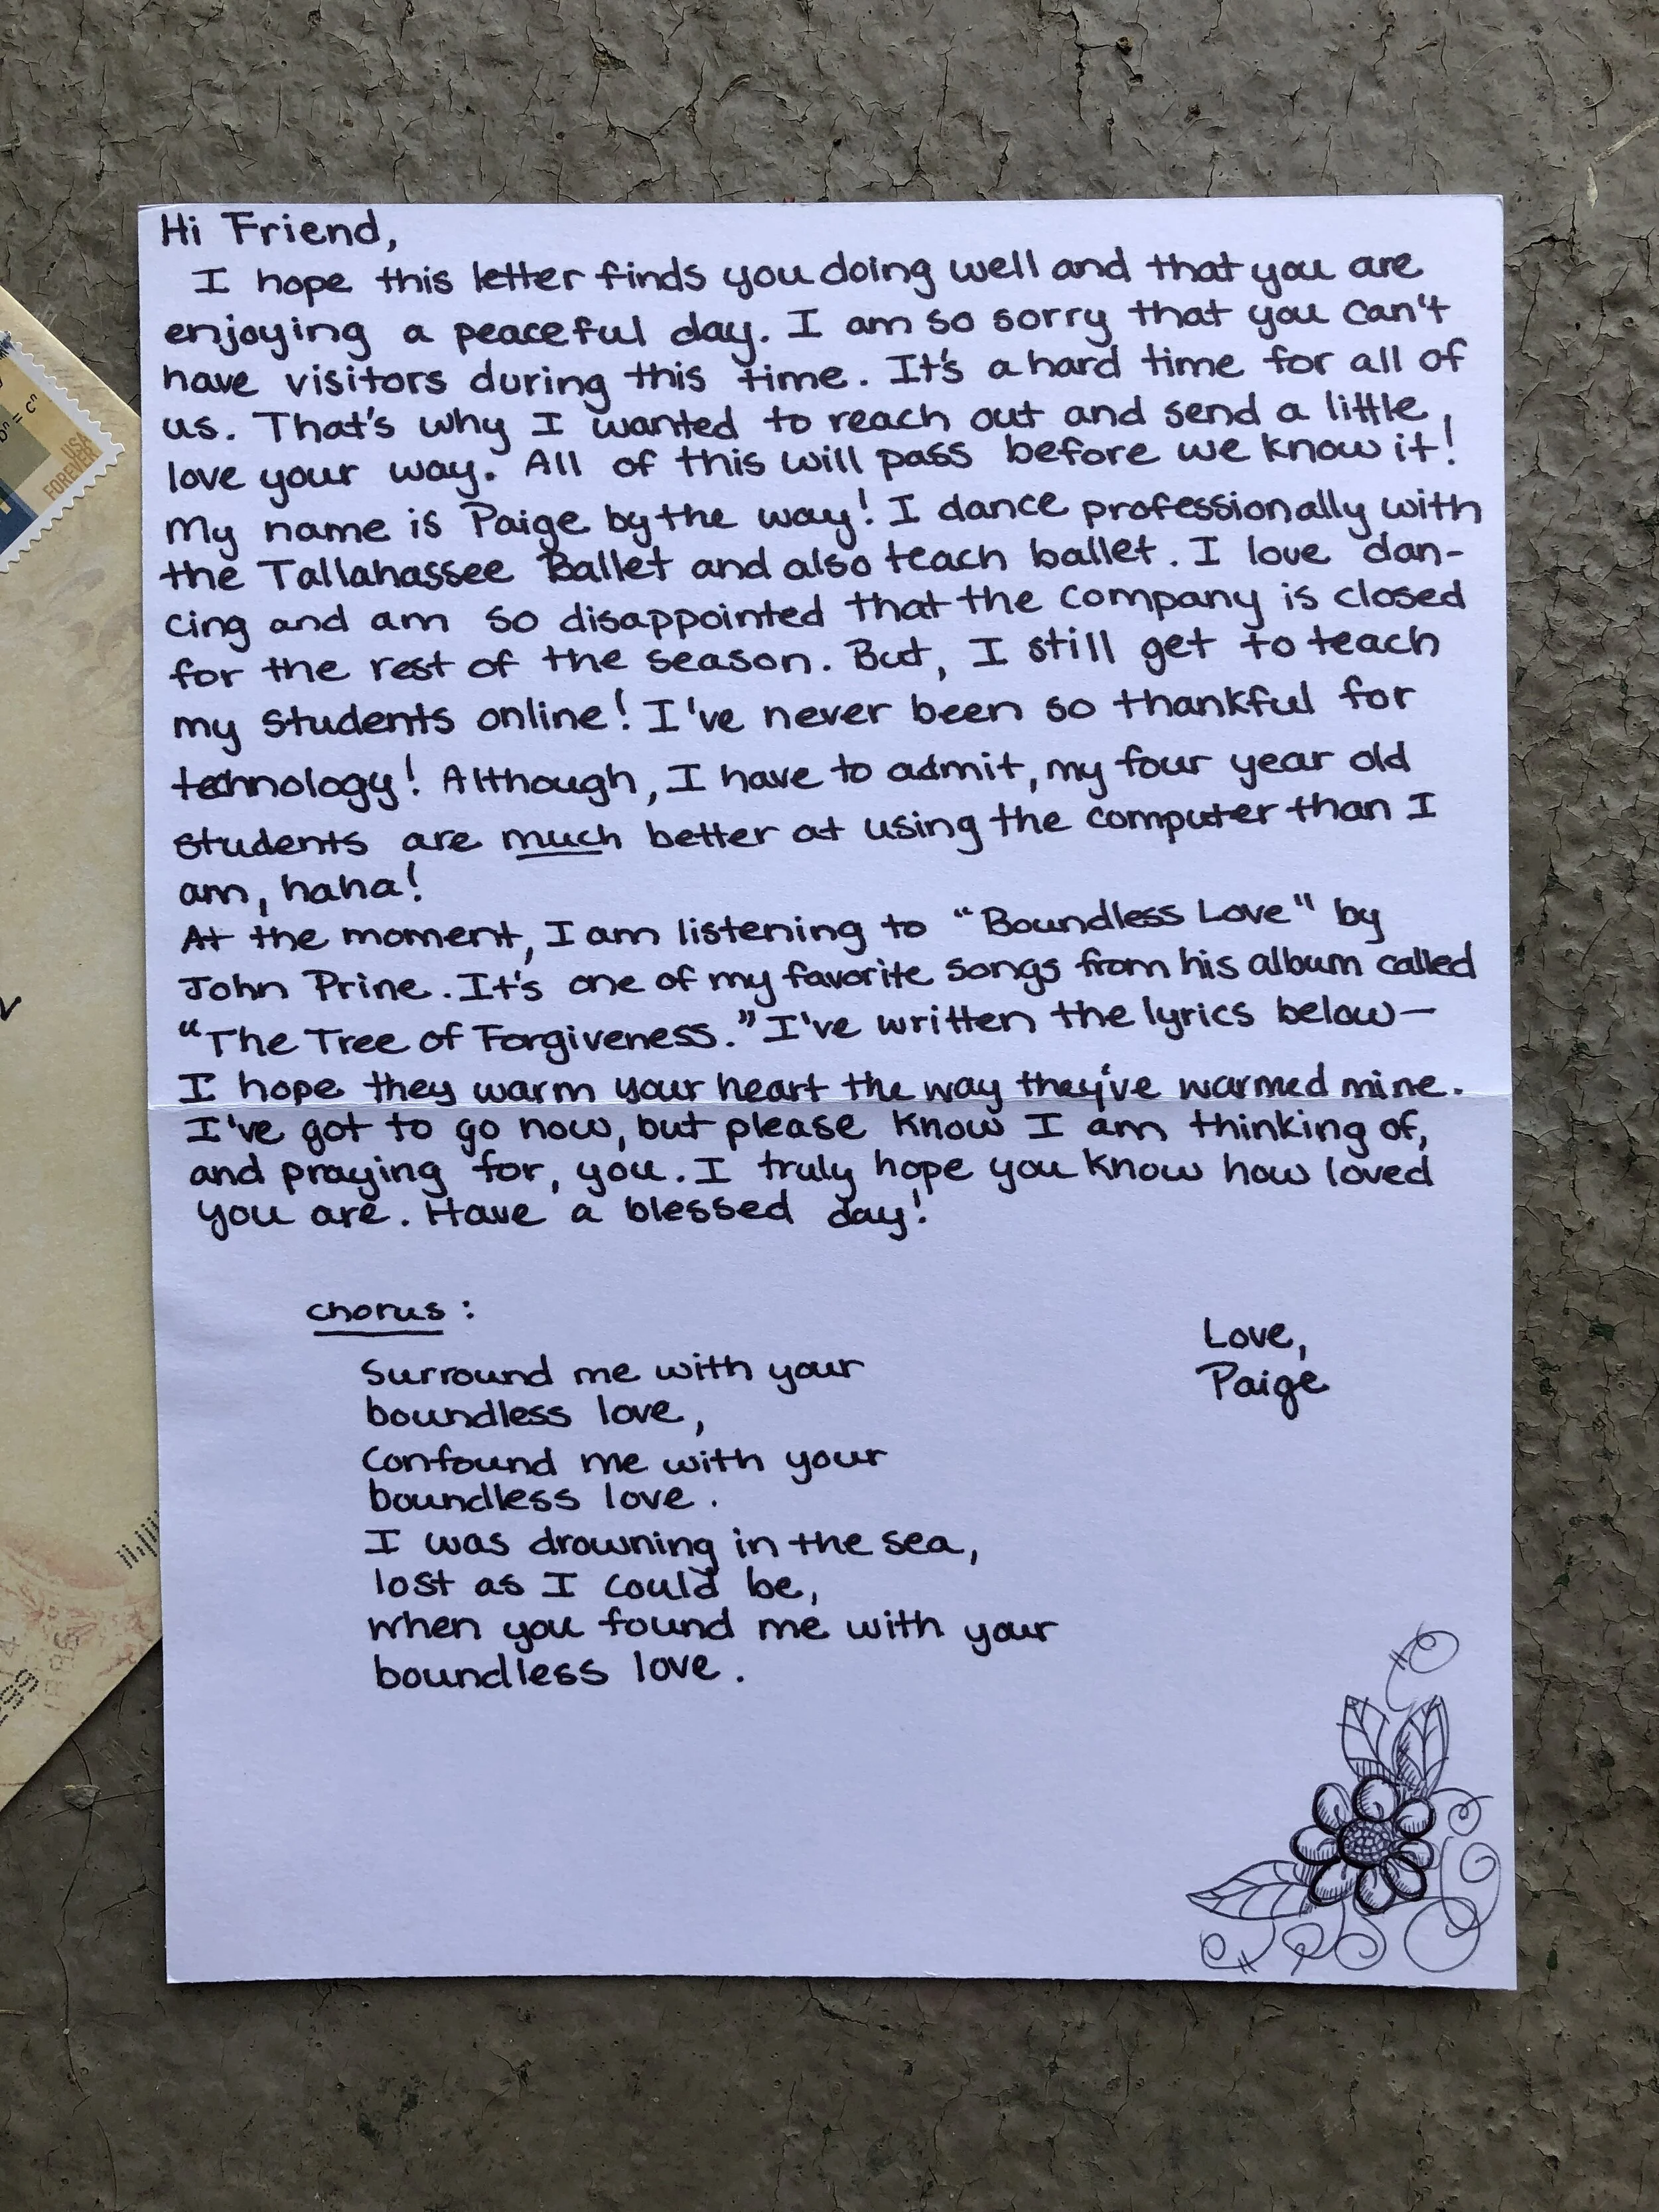 Hi Friend,
I hope this letter finds you doing well and that you are
enjoying a peaceful day. I am so sorry that you can't
have visitors during this time. It's a hard time for all of
us. That's why I wanted to reach out and send a little
love your way. All of this will pass before we know it!
My name is Paige by the way! I dance professionally with
the Tallahassee Ballet and also teach ballet. I love dan-
cing and am so disappointed that the company is closed
for the rest of the season. But, I still get to teach
my students online! I've never been so thankful for
technology! Although, I have to admit, my four year old
students are much better at using the computer than I
am, haha!
At the moment, I am listening to "Boundless Love" by
John Prine. It's one of my favorite songs from his album called
"The Tree of Forgiveness." I've written the lyrics below—
I hope they warm your heart the way they've warmed mine.
I've got to go now, but please know I am thinking of,
and praying for, you. I truly hope you know how loved
you are. Have a blessed day!
chorus:
Surround me with your
boundless love,
Confound me with your
boundless love.
I was drowning in the sea,
lost as I could be,
when you found me with your
boundless love.
Love,
Paige
USA
FOREVER